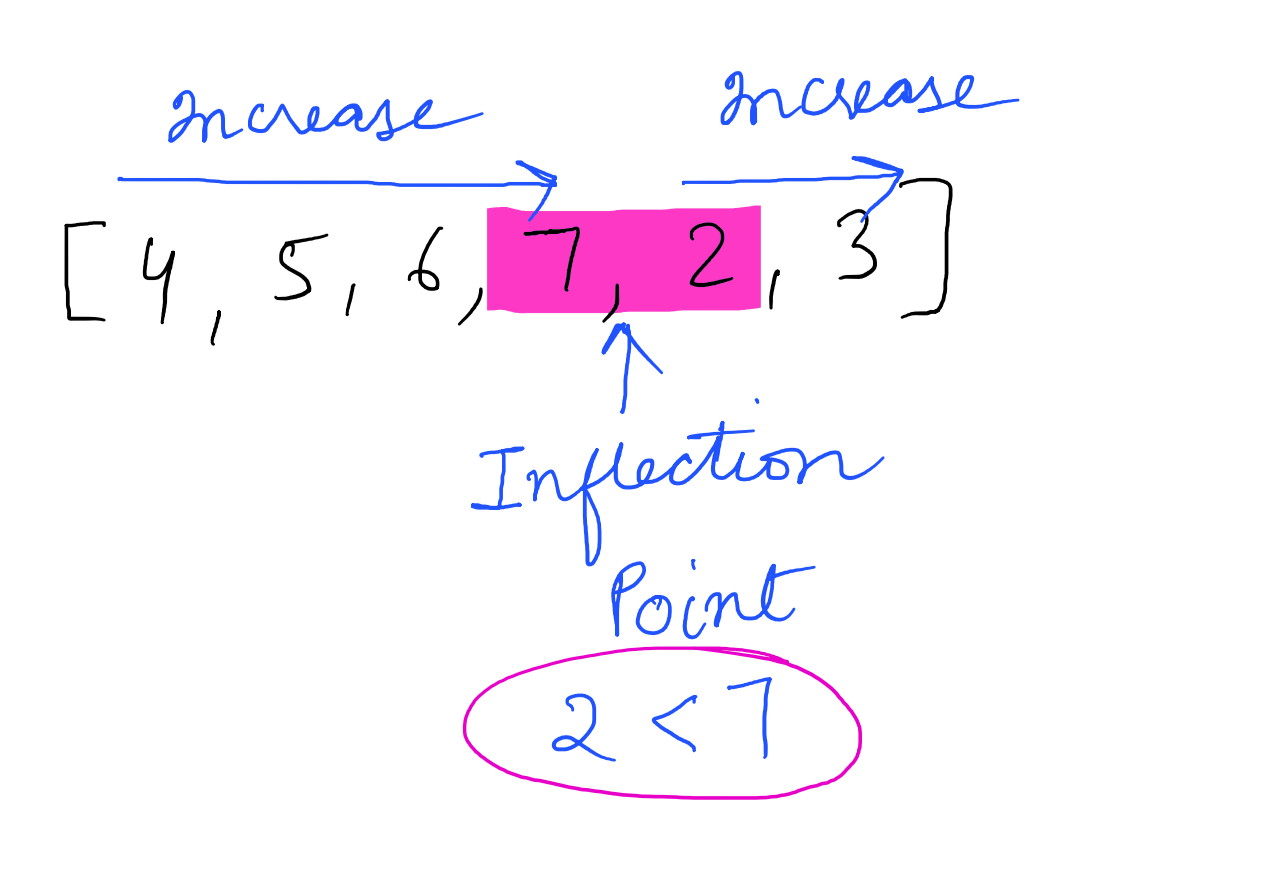 Increase Increase
[4, 5, 6, 7, 2, 3]
Inflection
Point
2 < 7